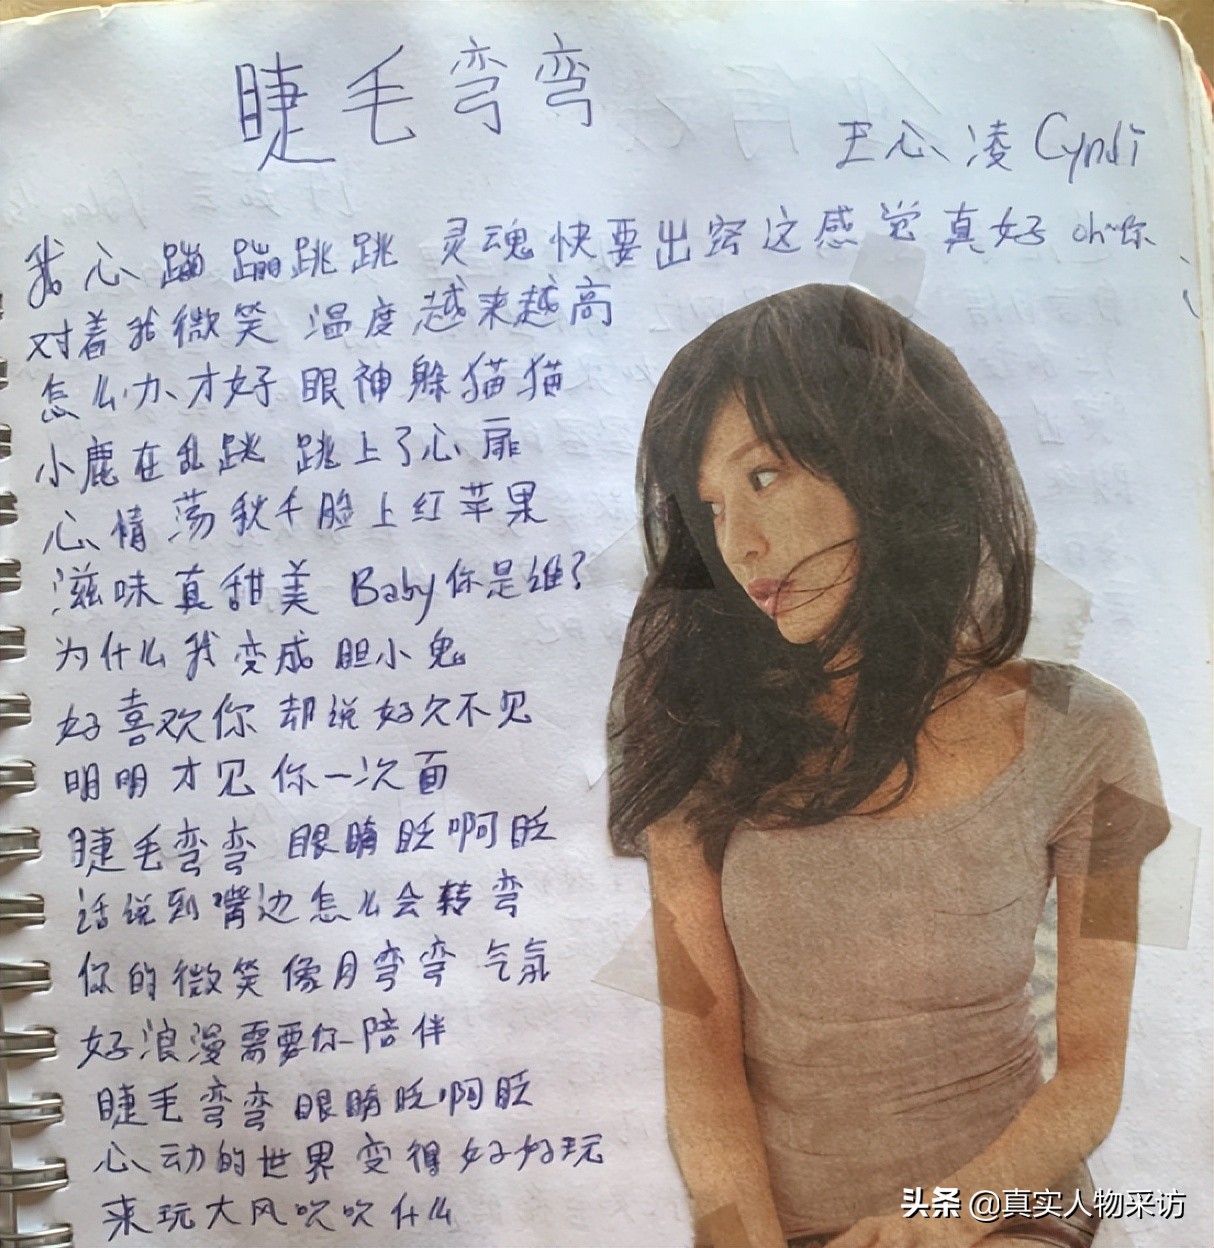 睫毛弯弯
王心凌 Cyndi
我心蹦蹦跳跳 灵魂快要出窍这感觉真好 oh~你
对着我微笑 温度越来越高
怎么办才好 眼神躲猫猫
小鹿在乱跳 跳上了心扉
心情荡秋千脸上红苹果
滋味真甜美 Baby你是谁?
为什么我变成胆小鬼
好喜欢你 却说好久不见
明明才见你一次面
睫毛弯弯 眼睛眨啊眨
话说到嘴边怎么会转弯
你的微笑像月弯弯 气氛
好浪漫需要你陪伴
睫毛弯弯眼睛眨啊眨
心动的世界变得好好玩
来玩大风吹吹什么
头条 @真实人物采访